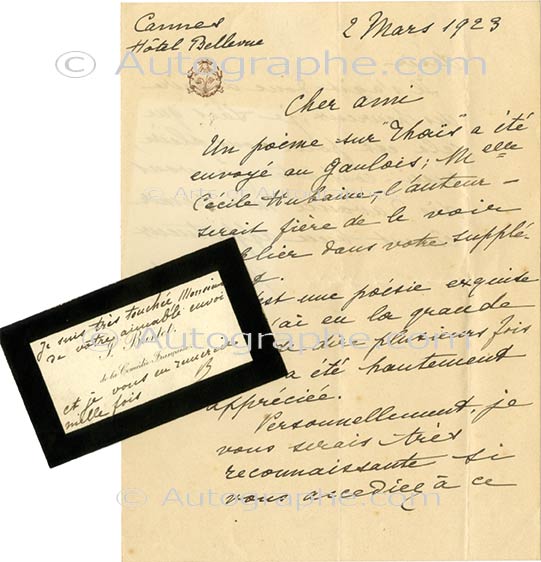 Cannes
Hôtel Bellevue
2 Mars 1923
Cher ami
Un poème sur "Thaïs" a été
envoyé au Gaulois; Melle
Cecile Aubaine, l'auteur –
serait fière de le voir
lier dans votre supplé-
est une poésie exquise
ai eu la grande
dire plusieurs fois
a été hautement
appréciée.
Personnellement, je
vous serais très
reconnaissante si
vous accédiez à ce
Je suis très touchée Monsieur
de votre aimable envoi
J. Bartet
de la Comédie Française
et je vous en remercie
mille fois
B
© Autographe.com
© Autographe.com
© Autographe.com
© Autographe.com